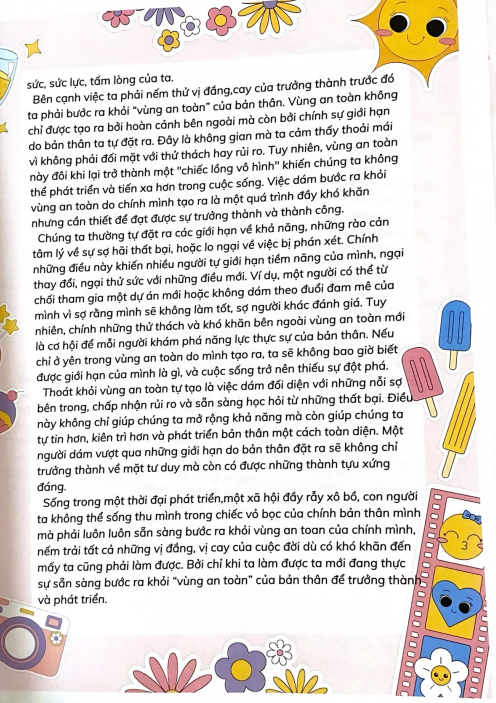 sức, sức lực, tấm lòng của ta.
Bên cạnh việc ta phải nếm thử vị đắng,cay của trưởng thành trước đó
ta phải bước ra khỏi “vùng an toàn” của bản thân. Vùng an toàn không
chỉ được tạo ra bởi hoàn cảnh bên ngoài mà còn bởi chính sự giới hạn
do bản thân ta tự đặt ra. Đây là không gian mà ta cảm thấy thoải mái
vì không phải đối mặt với thử thách hay rủi ro. Tuy nhiên, vùng an toàn
này đôi khi lại trở thành một "chiếc lồng vô hình" khiến chúng ta không
thể phát triển và tiến xa hơn trong cuộc sống. Việc dám bước ra khỏi
vùng an toàn do chính mình tạo ra là một quá trình đầy khó khăn
nhưng cần thiết để đạt được sự trưởng thành và thành công.
Chúng ta thường tự đặt ra các giới hạn về khả năng, những rào cản
tâm lý về sự sợ hãi thất bại, hoặc lo ngại về việc bị phán xét. Chính
những điều này khiến nhiều người tự giới hạn tiềm năng của mình, ngại
thay đổi, ngại thử sức với những điều mới. Ví dụ, một người có thể từ
chối tham gia một dự án mới hoặc không dám theo đuổi đam mê của
mình vì sợ rằng mình sẽ không làm tốt, sợ người khác đánh giá. Tuy
nhiên, chính những thử thách và khó khăn bên ngoài vùng an toàn mới
là cơ hội để mỗi người khám phá năng lực thực sự của bản thân. Nếu
chỉ ở yên trong vùng an toàn do mình tạo ra, ta sẽ không bao giờ biết
được giới hạn của mình là gì, và cuộc sống trở nên thiếu sự đột phá.
Thoát khỏi vùng an toàn tự tạo là việc dám đối diện với những nỗi sợ
bên trong, chấp nhận rủi ro và sẵn sàng học hỏi từ những thất bại. Điều
này không chỉ giúp chúng ta mở rộng khả năng mà còn giúp chúng ta
tự tin hơn, kiên trì hơn và phát triển bản thân một cách toàn diện. Một
người dám vượt qua những giới hạn do bản thân đặt ra sẽ không chỉ
trưởng thành về mặt tư duy mà còn có được những thành tựu xứng
đáng.
Sống trong một thời đại phát triển,một xã hội đầy rẫy xô bồ, con người
ta không thể sống thu mình trong chiếc vỏ bọc của chính bản thân mình
mà phải luôn luôn sẵn sàng bước ra khỏi vùng an toan của chính mình,
nếm trải tất cả những vị đắng, vị cay của cuộc đời dù có khó khăn đến
mấy ta cũng phải làm được. Bởi chỉ khi ta làm được ta mới đang thực
sự sẵn sàng bước ra khỏi “vùng an toàn” của bản thân để trưởng thành
và phát triển.